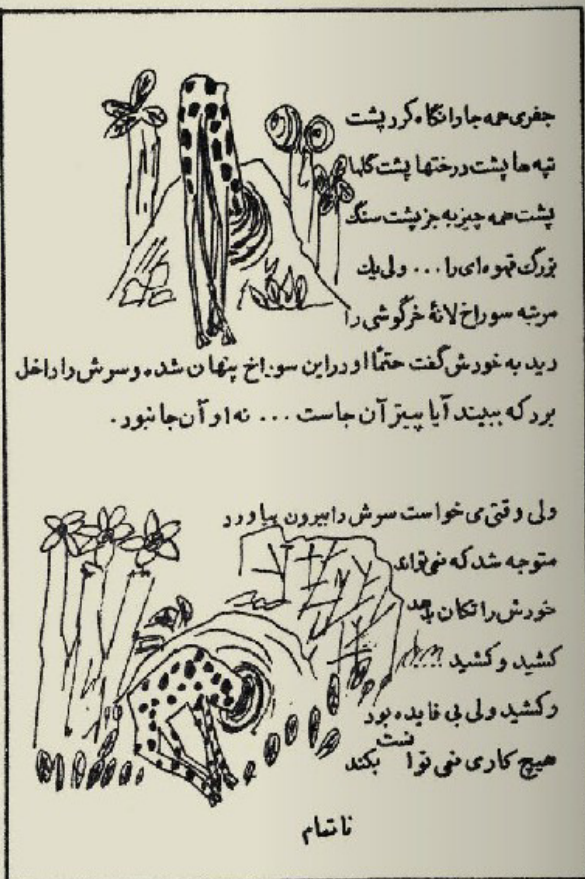 جفری همه جا را نگاه کرد پشت
تپه ها پشت درختها پشت گلها
پشت همه چیز به جز پشت سنگ
بزرگ قهوه ای را ... ولی یك
مرتبه سوراخ لانهٔ خرگوشی را
دید به خودش گفت حتماً او در این سوراخ پنهان شده و سرش را داخل
برد که ببیند آیا پیتر آن جاست ... نه او آن جا نبود.
ولی وقتی می خواست سرش را بیرون بیاورد
متوجه شد که نمی تواند
خودش را تکان بدهد
کشید و کشید ....
و کشید ولی بی فایده بود
هیچ کاری نمی توانست بکند
ناتمام